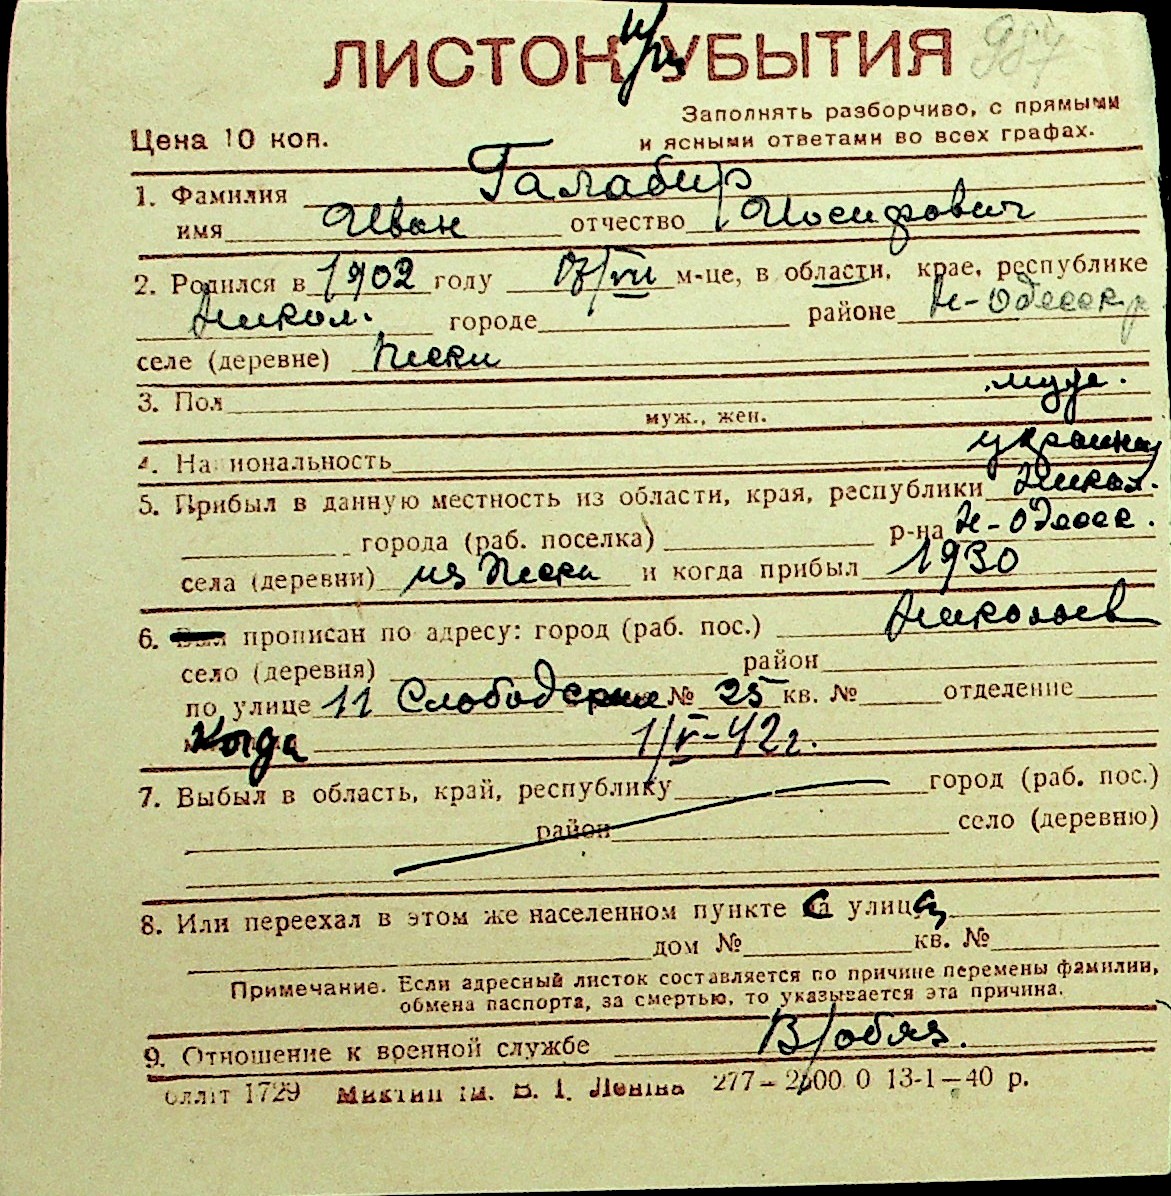 ЛИСТОК УБЫТИЯ 987
Заполнять разборчиво, с прямыми
Цена 10 коп. и ясными ответами во всех графах.
1. Фамилия Галабир
имя Иван отчество Иосифович
2. Родился в 1902 году м-це, в области, крае, республике
Никол. городе районе Н-Одесск. р
селе (деревне) Пески
3. Пол муж.
муж., жен.
4. Национальность украинец
5. Прибыл в данную местность из области, края, республики Никол.
города (раб. поселка) р-на Н-Одесск.
села (деревни) из Пески и когда прибыл 1930
6. прописан по адресу: город (раб. пос.) Николаев
село (деревня) район
по улице 11 Слободская № 25 кв. № отделение
Когда 1/V-42г.
7. Выбыл в область, край, республику город (раб. пос.)
район село (деревню)
8. Или переехал в этом же населенном пункте с улицы
дом № кв. №
Примечание. Если адресный листок составляется по причине перемены фамилии,
обмена паспорта, за смертью, то указывается эта причина.
9. Отношение к военной службе В/обяз.
1729 ім. В. І. Леніна 277 – 2500 0 13-1—40 р.